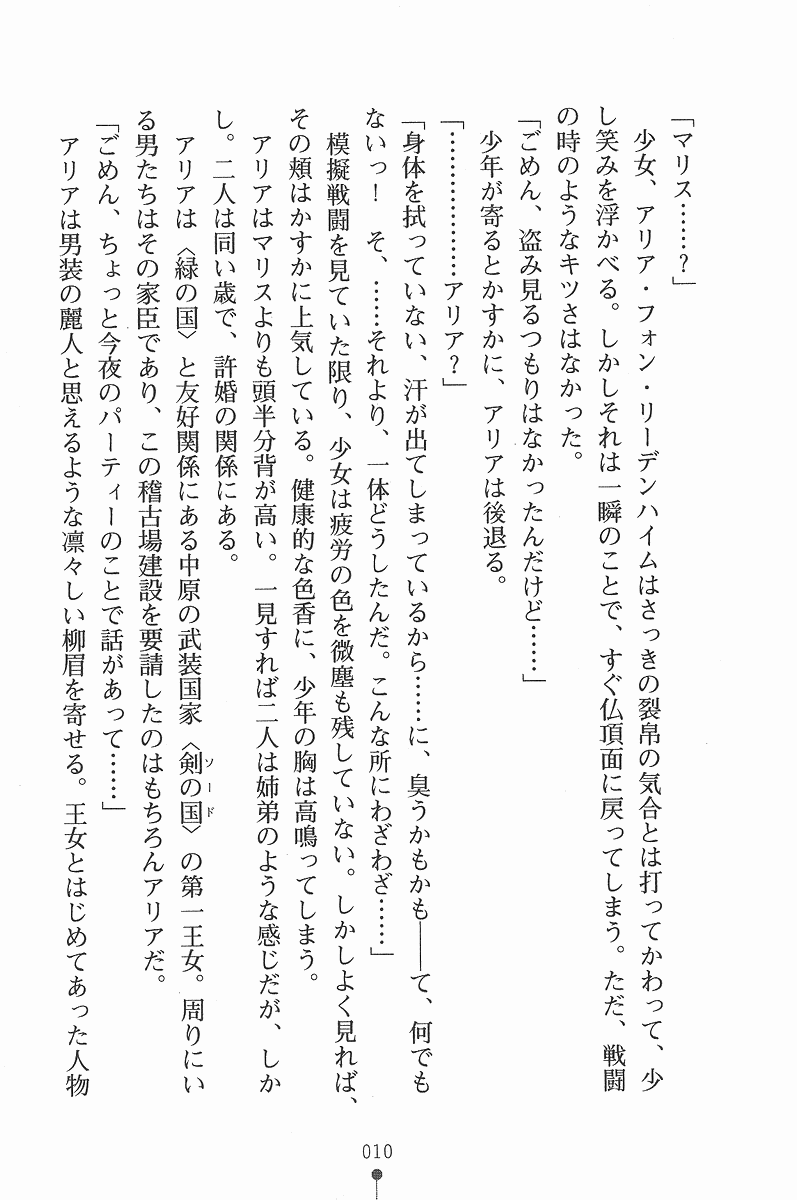 「マリス……？」
　少女、アリア・フォン・リーデンハイムはさっきの裂帛の気合とは打ってかわって、少
し笑みを浮かべる。しかしそれは一瞬のことで、すぐ仏頂面に戻ってしまう。ただ、戦闘
の時のようなキツさはなかった。
「ごめん、盗み見るつもりはなかったんだけど……」
　少年が寄るとかすかに、アリアは後退る。
「………………アリア？」
「身体を拭っていない、汗が出てしまっているから……に、臭うかもかも――て、何でも
ないっ！　そ、……それより、一体どうしたんだ。こんな所にわざわざ……」
　模擬戦闘を見ていた限り、少女は疲労の色を微塵も残していない。しかしよく見れば、
その頬はかすかに上気している。健康的な色香に、少年の胸は高鳴ってしまう。
　アリアはマリスよりも頭半分背が高い。一見すれば二人は姉弟のような感じだが、しか
し。二人は同い歳で、許婚の関係にある。
　アリアは〈緑の国〉と友好関係にある中原の武装国家〈剣の国〉の第一王女。周りにい
ソード
る男たちはその家臣であり、この稽古場建設を要請したのはもちろんアリアだ。
「ごめん、ちょっと今夜のパーティーのことで話があって……」
　アリアは男装の麗人と思えるような凛々しい柳眉を寄せる。王女とはじめてあった人物
010